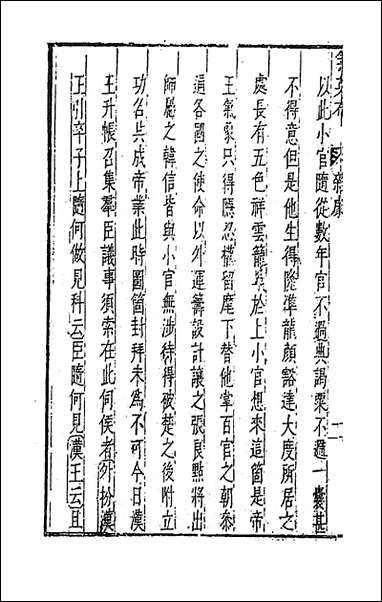 以此小官隨從數年官不過典謁粟不過一囊甚
不得意但是他生得隆準龍顏豁達大度所居之
處長有五色祥雲籠罩於上小官想來這箇是帝
王氣象只得隱忍權留麾下替他掌百官之朝參
通各國之使命以外運籌設計讓之張良點將出
師屬之韓信皆與小官無涉待得破楚之後附立
功名共成帝業此時圖箇封拜未為不可今日漢
王升帳召集羣臣議事須索在此伺候者外扮漢
王引卒子上隨何做見科云臣隨何見漢王云且